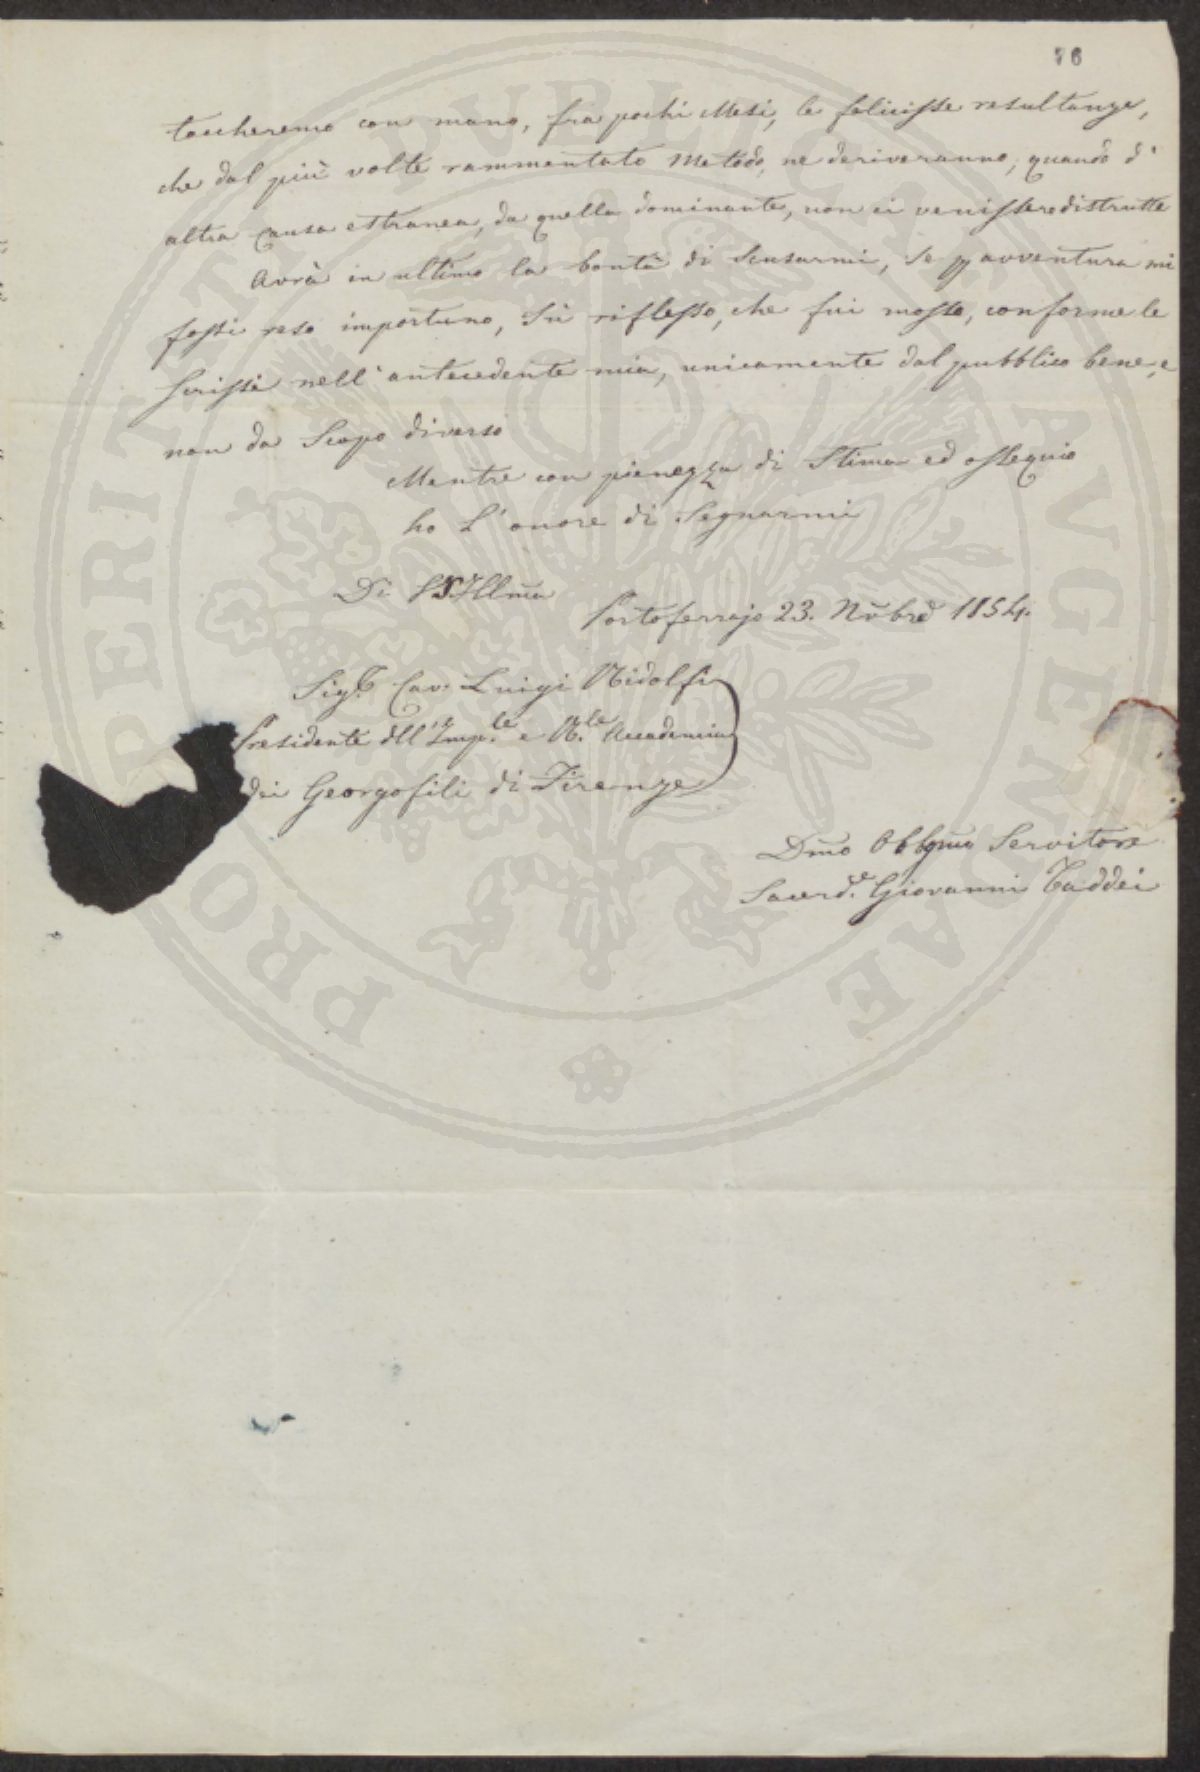 76
toccheremo con mano, fra pochi Mesi, le felicisse resultanze,
che dal più volte rammentato Metodo, ne deriveranno, quando d'
altra causa estranea, da quella dominante, non ci venissero distrutte
Avrà in ultimo la bontà di Scusarmi, Se p avventura mi
fossi reso importuno, Sù riflesso, che fui mosso, conforme le
Scrissi nell'antecedente mia, unicamente dal pubblico bene, e
non da Scopo diverso
Mentre con pienezza di Stima ed ossequio
ho L'onore di Segnarmi
Di S. S. Illma
Portoferrajo 23. Nvbre 1854.
Sigr. Cav. Luigi Ridolfi
Presidente dll'Imp.le e R.le Accademia
dei Georgofili di Firenze
Dmo Obbgmo Servitore
Sacerd.e Giovanni Taddei
PROSPERITATI PVBLICAE AVGENDAE